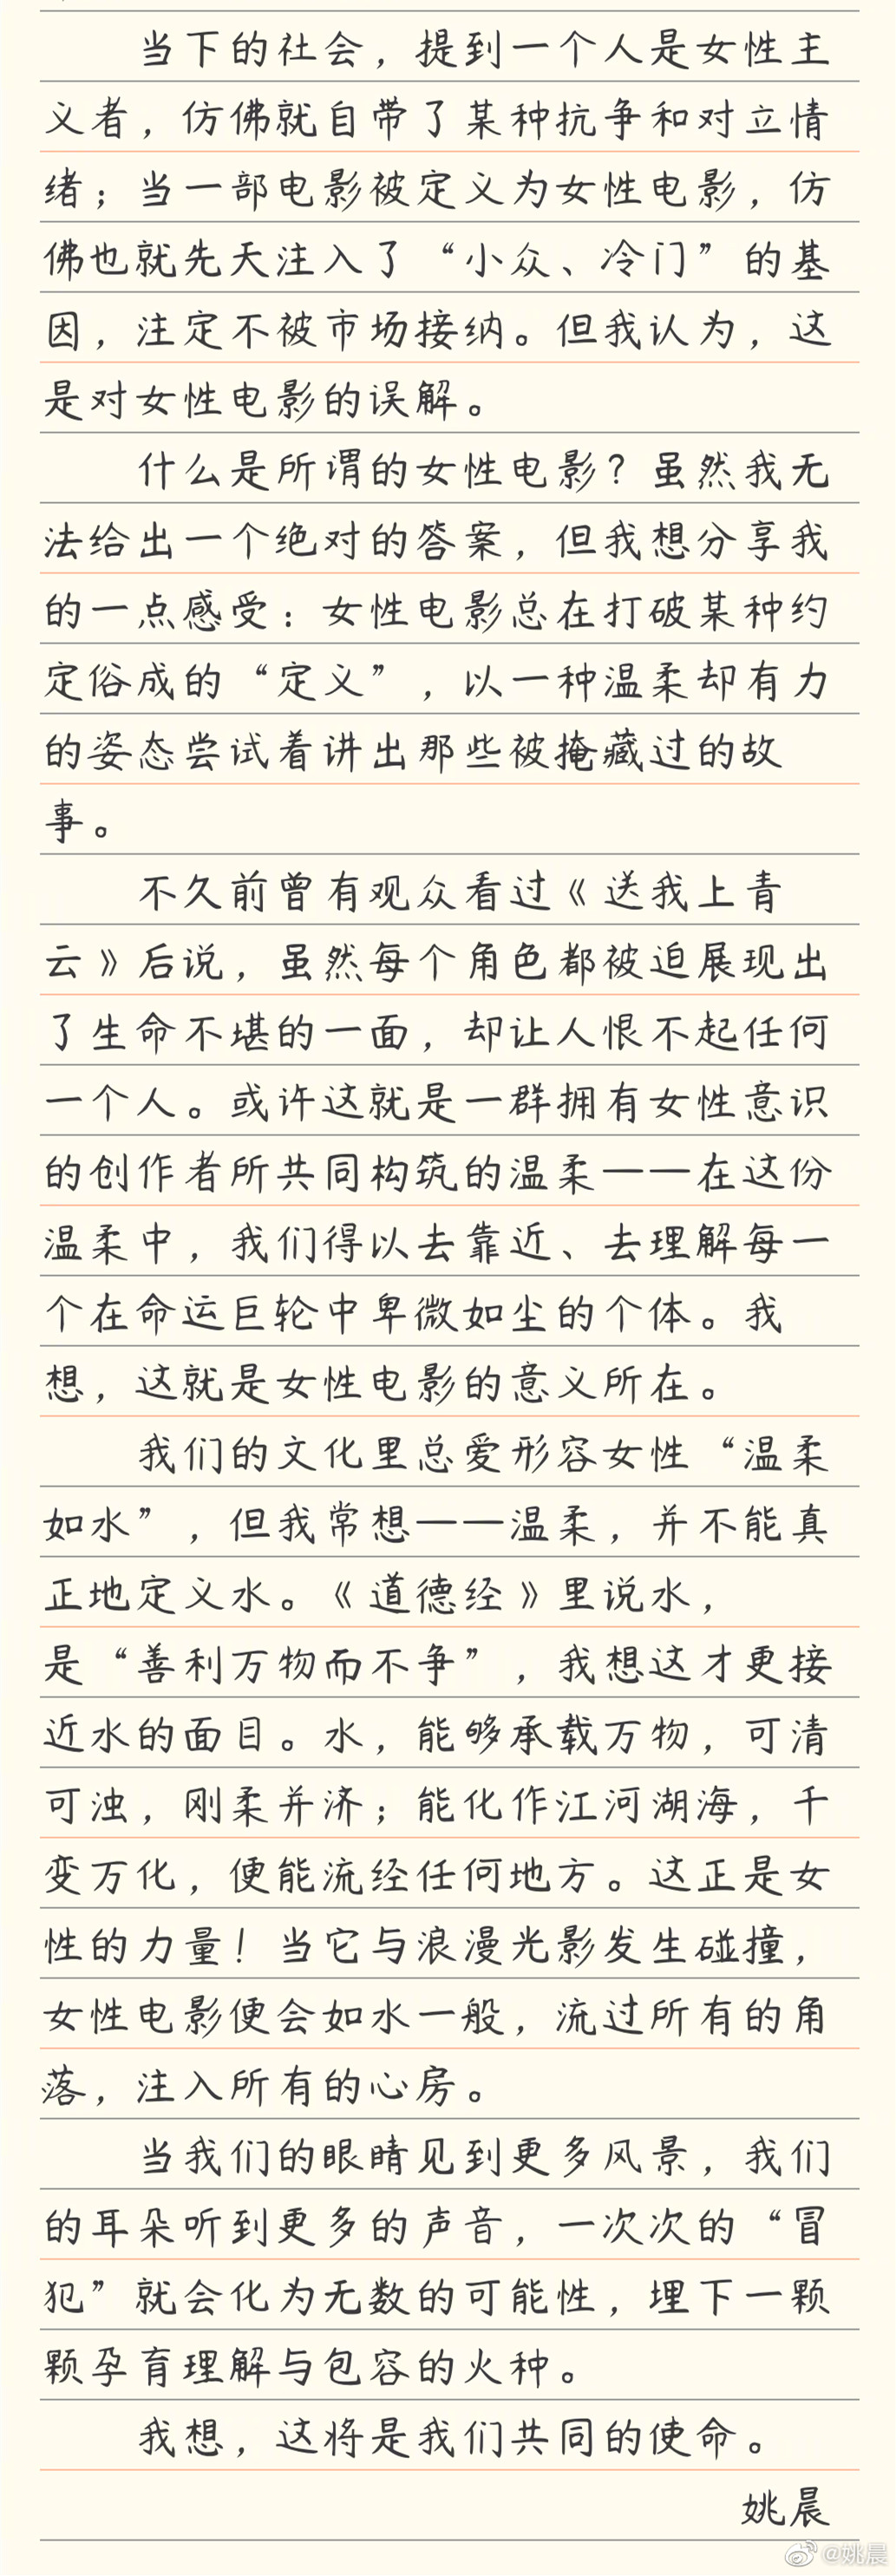 当下的社会，提到一个人是女性主
义者，仿佛就自带了某种抗争和对立情
绪；当一部电影被定义为女性电影，仿
佛也就先天注入了“小众、冷门”的基
因，注定不被市场接纳。但我认为，这
是对女性电影的误解。
什么是所谓的女性电影？虽然我无
法给出一个绝对的答案，但我想分享我
的一点感受：女性电影总在打破某种约
定俗成的“定义”，以一种温柔却有力
的姿态尝试着讲出那些被掩藏过的故
事。
不久前曾有观众看过《送我上青
云》后说，虽然每个角色都被迫展现出
了生命不堪的一面，却让人恨不起任何
一个人。或许这就是一群拥有女性意识
的创作者所共同构筑的温柔——在这份
温柔中，我们得以去靠近、去理解每一
个在命运巨轮中卑微如尘的个体。我
想，这就是女性电影的意义所在。
我们的文化里总爱形容女性“温柔
如水”，但我常想——温柔，并不能真
正地定义水。《道德经》里说水，
是“善利万物而不争”，我想这才更接
近水的面目。水，能够承载万物，可清
可浊，刚柔并济；能化作江河湖海，千
变万化，便能流经任何地方。这正是女
性的力量！当它与浪漫光影发生碰撞，
女性电影便会如水一般，流过所有的角
落，注入所有的心房。
当我们的眼睛见到更多风景，我们
的耳朵听到更多的声音，一次次的“冒
犯”就会化为无数的可能性，埋下一颗
颗孕育理解与包容的火种。
我想，这将是我们共同的使命。
姚晨
@姚晨